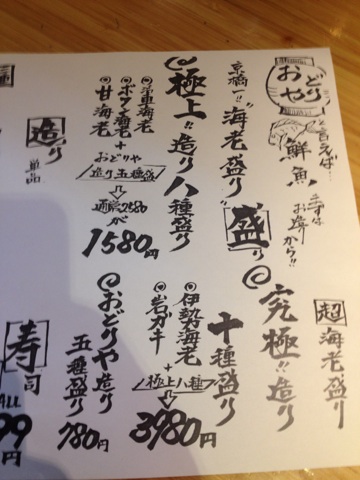 おどりや
と言えば…
鮮魚
まずは
お造りから!!
京橋一!!"海老盛り"
盛り
極上!!造り八種盛り
車海老
ボタン海老
甘海老
+
おどりや
造り五種盛
通常2580
が
1580円
造り
単品
超
海老盛り
究極!!造り
十種盛り
伊勢海老
岩ガキ
+
極上八種
3980円
おどりや造り
五種盛り
780円
寿司
ALL
99円